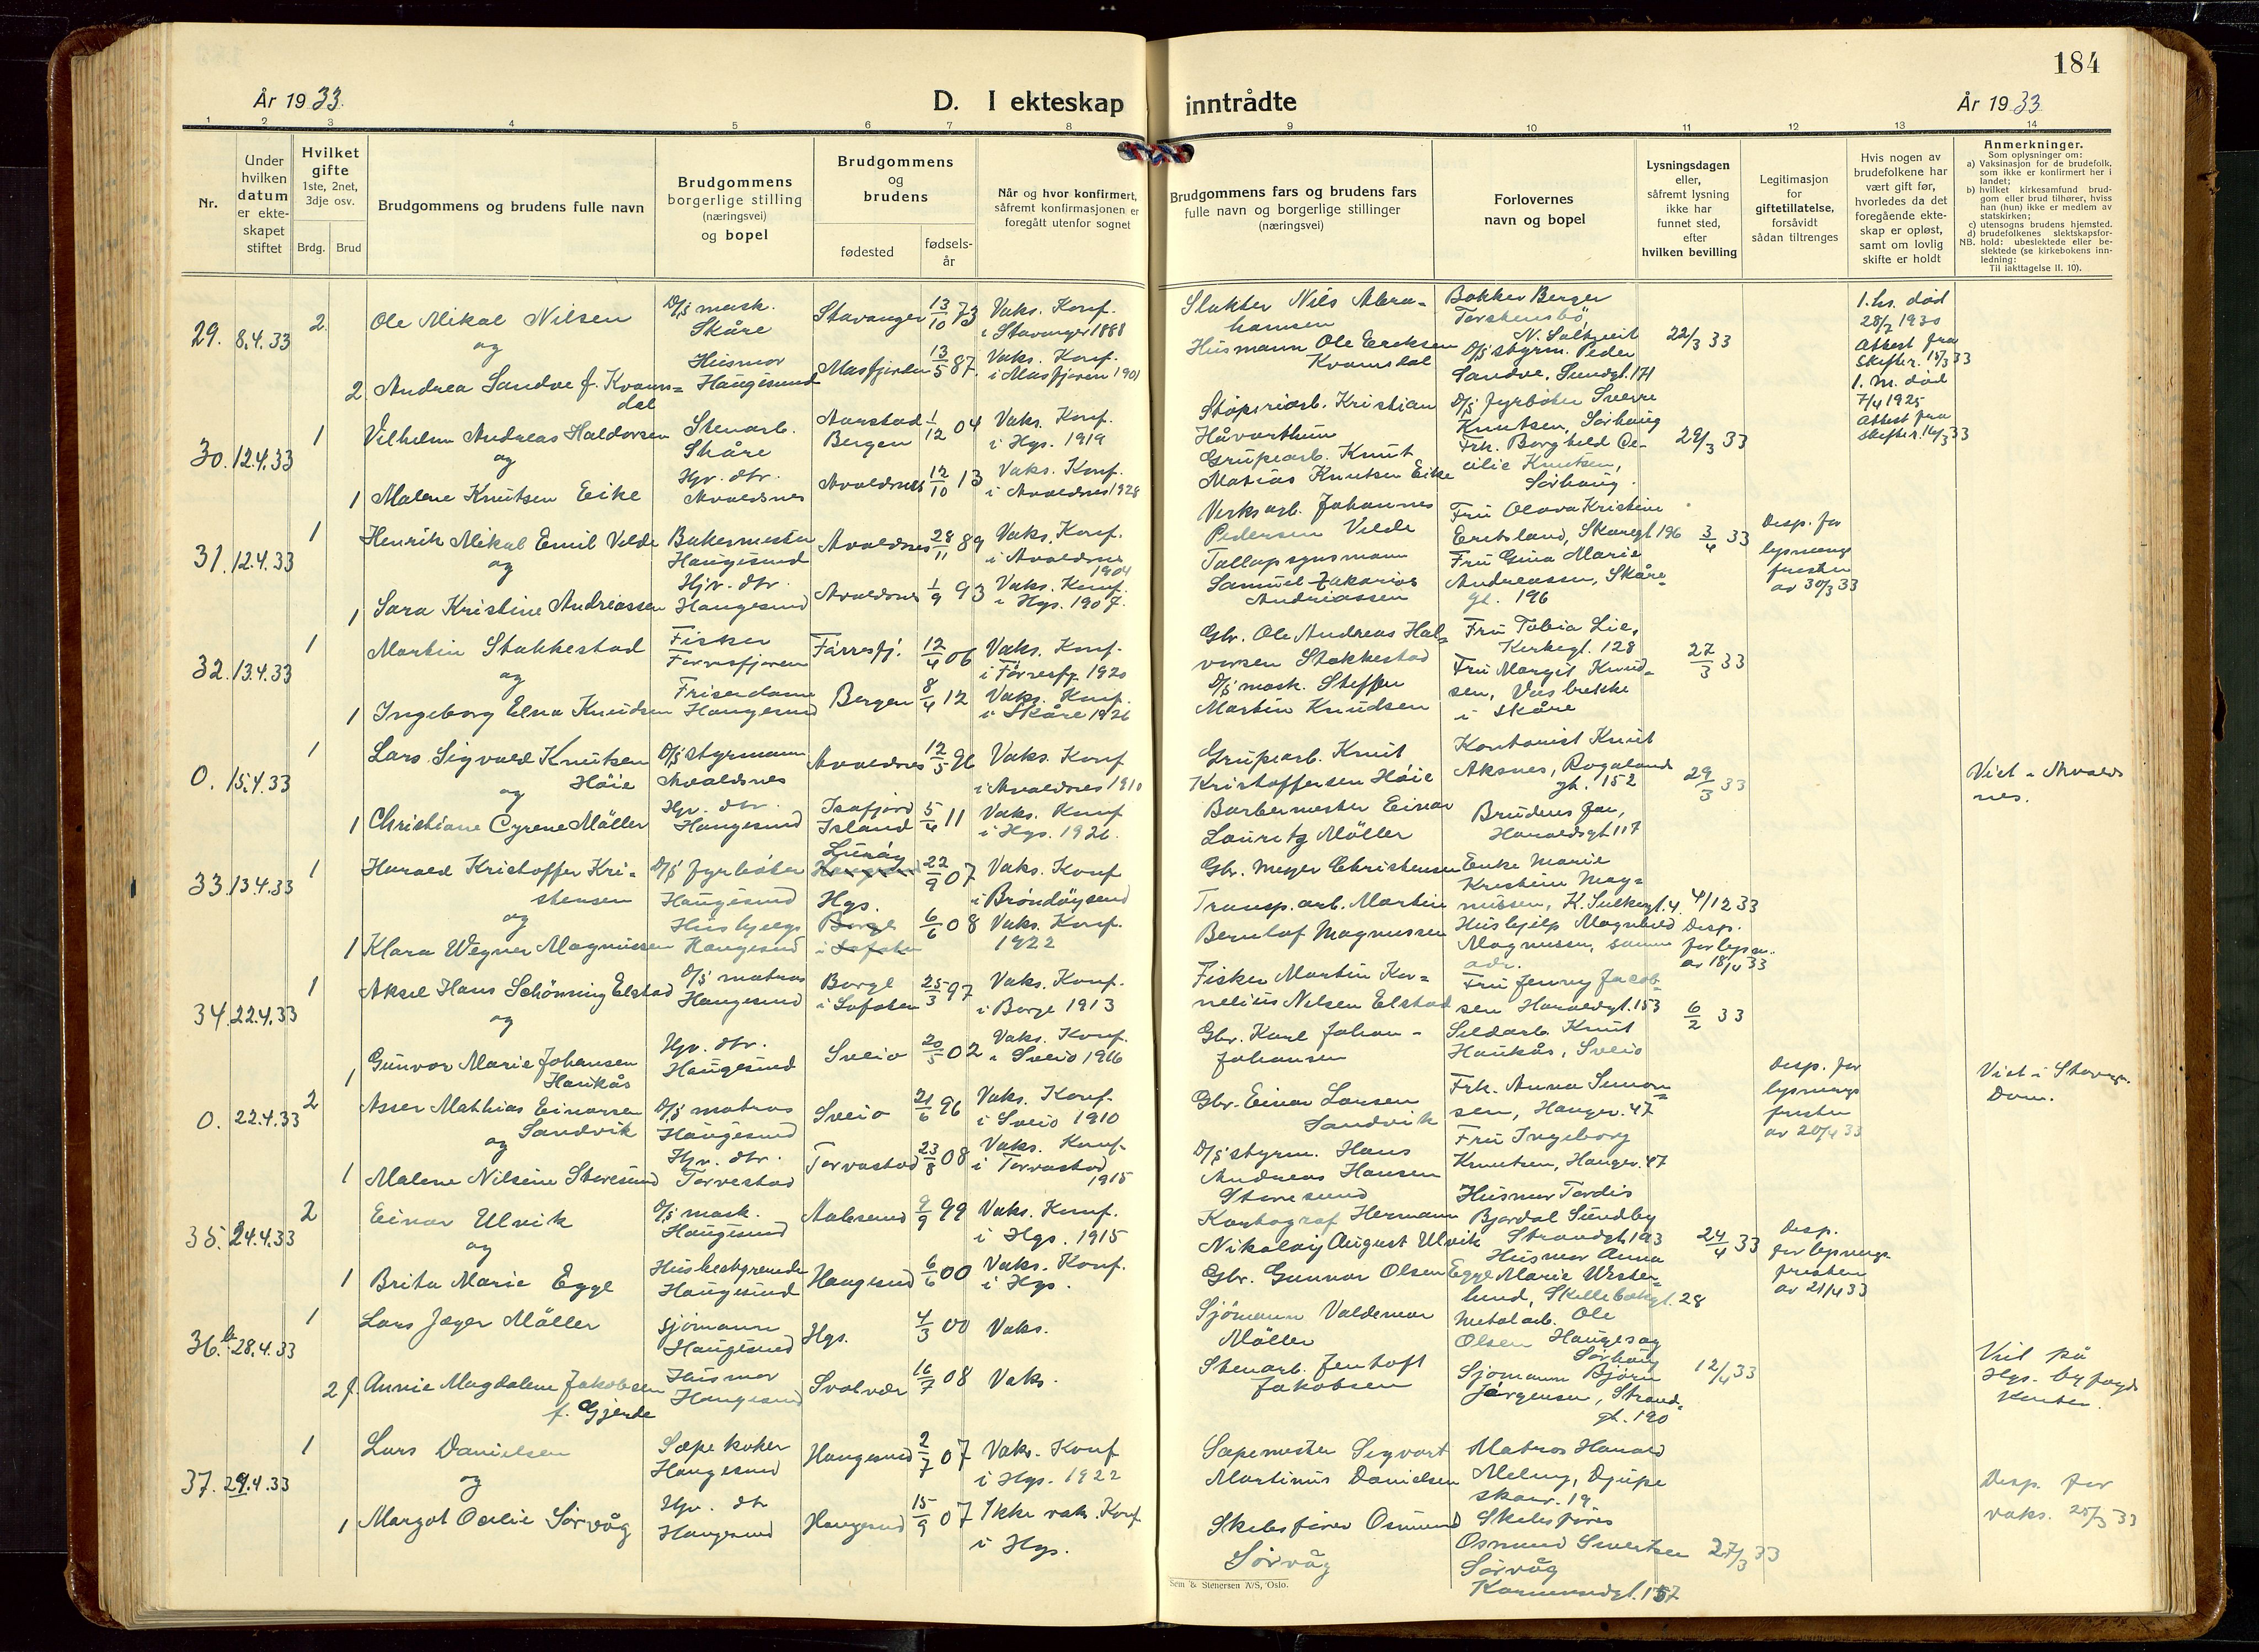 184
År 1933.
D. I ekteskap inntrådte
År 1933
1 2 3 4 5 6 7 8 9 10 11 12 13 14
Nr.
Under
hvilken
datum
er ekte-
skapet
stiftet
Hvilket
gifte
1ste, 2net,
3dje osv.
Brdg. Brud
Brudgommens og brudens fulle navn
Brudgommens
borgerlige stilling
(næringsvei)
og bopel
Brudgommens
og
brudens
fødested
fødsels-
år
Når og hvor konfirmert,
såfremt konfirmasjonen er
foregått utenfor sognet
Brudgommens fars og brudens fars
fulle navn og borgerlige stillinger
(næringsvei)
Forlovernes
navn og bopel
Lysningsdagen
eller,
såfremt lysning
ikke har
funnet sted,
efter
hvilken bevilling
Legitimasjon
for
giftetillatelse,
forsåvidt
sådan tiltrenges
Hvis nogen av
brudefolkene har
vært gift før,
hvorledes da det
foregående ekte-
skap er opløst,
samt om lovlig
skifte er holdt
Anmerkninger.
Som oplysninger om:
a) Vaksinasjon for de brudefolk,
som ikke er konfirmert her i
landet;
b) hvilket kirkesamfund brud-
gom eller brud tilhører, hviss
han (hun) ikke er medlem av
statskirken;
c) utensogns brudens hjemsted.
d) brudefolkenes slektskapsfor-
NB. hold: ubeslektede eller be-
slektede (se kirkebokens inn-
ledning:
Til iakttagelse II. 10).
29. 8.4.33
2
Ole Mikal Nilsen
og
2 Andrea Sandve f. Kvams=
dal
D/s mask.
Skåre
Husmor
Haugesund
Stavanger 13/10 73
Masfjorden 13/5 87.
Vaks. Konf.
i Stavanger 1888
Vaks. Konf.
i Masfjoren 1901
Slakter Nils Abra=
hamsen
Husmann Ole Ericksen
Kvamsdal
Bakker Berger
Torstensbö,
N. Saltveit
D/s styrm. Peder
Sandve, Sundgt. 171
22/3 33
1. hs. död
28/7 1930
Attest fra
Skifter. 15/3 33
1. m. död
7/4 1925
Attest fra
Skifter. 14/3 33
30. 12.4.33
1
Vilhelm Andreas Haldorsen
og
1 Malene Knutsen Eike
Stenarb.
Skåre
Hjv. dtr.
Avaldsnes
Aarstad
Bergen 1/12 04
Avaldsnes 12/10 13
Vaks. Konf.
i Hgs. 1919
Vaks. Konf.
i Avaldsnes 1928
Støperiarb. Kristian
Håvarthun
Grupearb. Knut
Matias Knutsen Eike
D/s fyrböter Sverre
Knutsen, Sörhaug
Frk. Borghild Ce-
cilie Knutsen,
Sörhaug.
29/3 33
31. 12.4.33
1
Henrik Mikal Emil Velde
og
1 Sara Kristine Andreassen
Bakermester
Haugesund
Hjv. dtr.
Haugesund
Avaldsnes 28/11 89
Avaldsnes 1/9 93
Vaks. Konf.
i Avaldsnes
1904
Vaks. Konf.
i Hgs. 1907.
Verksarb. Johannes
Pedersen Velde
Tallopsynsmann
Samuel Zakarias
Andreassen
Fru Olava Kristine
Eriksland, Skåregt 196
Fru Gina Marie
Andreassen, Skåre-
gt. 196
3/4 33
Desp. for
lysnings
fristen
av 30/3 33
32. 13.4.33
1
Martin Stakkestad
og
1 Ingeborg Elna Knudsen
Fisker
Förresfjoren
Friserdame
Haugesund
Förresfj. 12/4 06
Bergen 8/4 12
Vaks. Konf.
i Förresfj. 1920
Vaks. Konf.
i Skåre 1926
Gbr. Ole Andreas Hal=
vorsen Stakkestad
D/s mask. Steffen
Martin Knudsen
Fru Tobia Lie,
Kirkegt. 128
Fru Margit Knud=
sen, Vasbrekke
i Skåre
27/3 33
0. 15.4.33
1
Lars Sigvald Knutsen
og Höie
1 Christiane Cyrene Mäller
D/s styrmann
Avaldsnes
Hjv. dtr.
Haugesund
Avaldsnes 12/5 96
Isafjord
Island 5/4 11
Vaks. Konf
i Avaldsnes 1910
Vaks. Konf
i Hgs. 1926.
Grupearb. Knut
Kristoffersen Höie
Barbermester Einar
Lauritz Mäller
Kontorist Knut
Aksnes, Rogaland
gt. 152
Brudens far,
Haraldsgt 117
29/3 33
Viet i Avalds
nes.
33. 13.4.33
1
Harald Kristoffer Kri=
stensen
og
1 Klara Wegner Magnussen
D/s fyrböter
Haugesund
Hushjelp
Haugesund
Luröy
22/9 07
Hgs.
Borge
i Lofoten
6/6 08
Vaks. Konf
i Bröndöysund
Vaks. Konf.
1922
Gbr. Meyer Christensen
Transp. arb. Martin
Berntof Magnussen
Enke Marie
Kristine Mag=
nussen, K. Sulkesgt. 4.
Hushjelp Magnhild
Magnussen, samme
adr.
4/12 33
Desp.
for lysn.
av 18/4 33
34. 22.4.33
1
Aksel Hans Schönning Elstad
og
1 Gunvor Marie Johansen
Haukås
D/s matros
Haugesund
Hjv. dtr.
Haugesund
Borge
i Lofoten 25/3 97
Sveio 20/5 02
Vaks. Konf.
i Borge 1913
Vaks. Konf.
i Sveio 1916
Fisker Martin Kor=
nelius Nilsen Elstad
Gbr. Karl Johan -
Johansen
Fru Jenny Jacob-
sen Haraldsgt. 153
Sildarb. Knut
Haukås, Sveio
6/2 33
0. 22.4.33
2
Asser Mathias Einarsen
og Sandvik
1 Malene Nilsine Storesund
D/s matros
Haugesund
Hjv. dtr.
Torvestad
Sveio 21/6 96
Torvastad 23/8 08
Vaks. Konf.
i Sveio 1910
Vaks. Konf.
i Torvastad
1915
Gbr. Einar Larsen
Sandvik
D/s styrm. Hans
Andreas Hansen
Storesund
Frk. Anna Simon=
sen, Hauger. 47
Fru Ingeborg
Knutsen, Hauger. 47
Desp. for
lysnings
fristen
av 20/4 33
Viet i Stavgr.
Dom.
35. 24.4.33
2
Einar Ulvik
og
1 Brita Marie Egge
D/s mask.
Haugesund
Husbestyrende
Haugesund
Aalesund 9/9 99
Haugesund 6/6 00
Vaks. Konf.
i Hgs. 1915
Vaks. Konf.
i Hgs.
Kartograf Hermann
Nikolaij August Ulvik
Gbr. Gunnar Olsen Egge
Husmor Tordis
Bjordal Sundby
Strandgt. 193
Husmor Anna
Marie Wester=
lund, Skillebekgt. 28
24/4 33
Desp.
for lysnings
fristen
av 21/4 33
36. b. 28.4.33
1
Lars Jæger Mäller
2 f. Annie Magdalene Jakobsen
f. Gjerde
Sjömann
Haugesund
Husmor
Haugesund
Hgs. 4/3 00
Svolvær 16/7 08
Vaks.
Vaks.
Sjömann Valdemar
Mäller
Stenarb. Jentoft
Jakobsen
Metalarb. Ole
Olsen Haugesag
Sörhaug
Sjömann Björn
Jörgensen, Strand=
gt. 190
12/4 33
Viet på
Hgs. byfogd
kontor.
37. 29.4.33
1
Lars Danielsen
og
1 Margot Cecilie Sörvåg
Sæpekoker
Haugesund
Hjv. dtr
Haugesund
Haugesund 2/7 07
Haugesund 15/9 07
Vaks. Konf
i Hgs. 1922
Ikke vaks. Konf
i Hgs.
Sæpemester Sigvart
Martinus Danielsen
Skibsförer Osmund
Sörvåg
Matros Harald
Meling, Djupa
skarv. 19
Skibsförer
Osmund Sivertsen
Sörvåg
Karmsundgt. 157
27/3 33
Desp. for
vaks. 25/3 33
Sem & Stenersen A/S, Oslo.